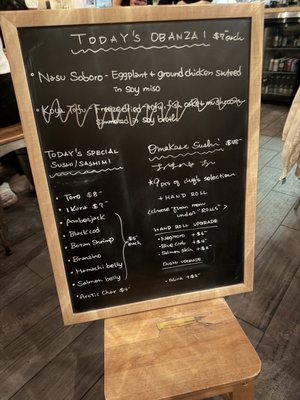 TODAY'S OBANZAI $7 each
• Nasu Soboro - Eggplant + ground chicken sauteed
in soy miso
• Koya Tofu - Freeze dried tofu, fish cake, mushroom
simmered in soy broth
TODAY'S SPECIAL
SUSHI/SASHIMI
• Toro $8-
• Ikura $7-
• Amberjack
• Black cod
• Botan Shrimp
• Branzino
• Hamachi belly
• Salmon belly
$5- each
• Arctic Char $4-
Omakase Sushi
* 9 pcs of chef's selection
+ HAND ROLL
(choose from menu
under "ROLLS")
HAND ROLL UPGRADE
• Negitoro +$6-
• Blue Crab +$4-
• Salmon skin +$2-
SUSHI UPGRADE